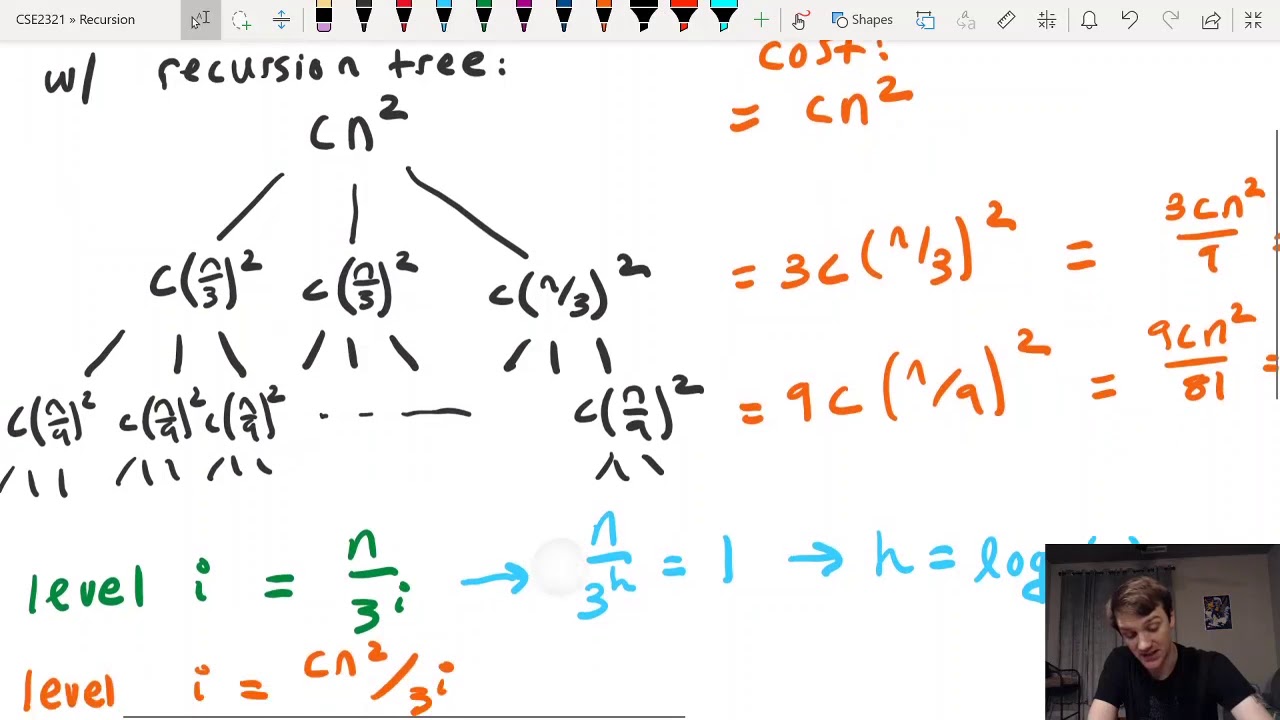 CSE2321 » Recursion
Shapes
w/ recursion tree:
cost:
cn²
= cn²
c(n/3)² c(n/3)² c(n/3)²
= 3c(n/3)² = 3cn²/9 =
c(n/9)² c(n/9)² c(n/9)² . - - — c(n/9)²
= 9c(n/9)² = 9cn²/81 =
level i = n/3^i → n/3^h = 1 → h = log
level i = cn²/3^i